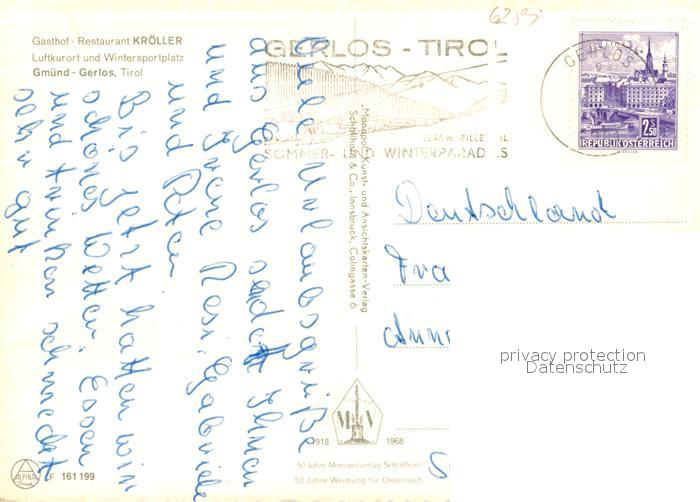 6281
Gasthof - Restaurant KRÖLLER
Luftkurort und Wintersportplatz
Gmünd - Gerlos, Tirol
GERLOS - TIROL
1246 m ZILLERTAL
SOMMER- UND WINTERPARADIES
GERLOS
2.50
REPUBLIK ÖSTERREICH
Viele Urlaubsgrüße
aus Gerlos sendet Ihnen
und Irene Resi, Gabriele
und Peter
Bis jetzt hatten wir
schönes Wetter. Essen
und trinken schmeckt
sehr gut
Monopol Kunst- und Ansichtskarten-Verlag
Schöllhorn & Co., Innsbruck, Colingasse 6
Deutschland
Fra
Ann
privacy protection
Datenschutz
M V
1918 1968
50 Jahre Monopolverlag Schöllhorn
50 Jahre Werbung für Österreich
S
ALPINA
F 161 199